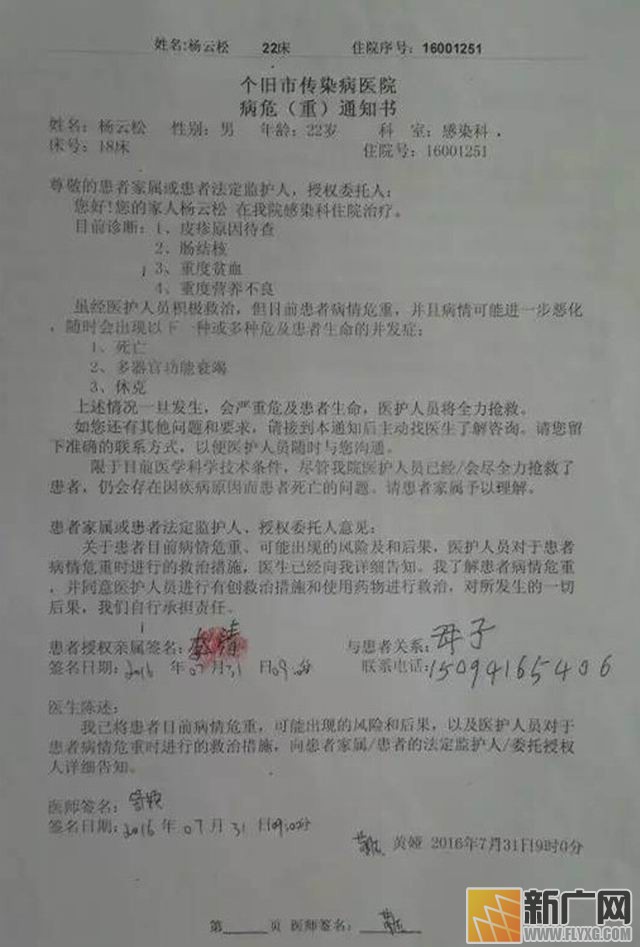 姓名:杨云松 22床 住院序号: 16001251
个旧市传染病医院
病危（重）通知书
姓名：杨云松 性别：男 年龄：22岁 科 室：感染科，
床号：18床 住院号：16001251
尊敬的患者家属或患者法定监护人，授权委托人：
您好!您的家人杨云松 在我院感染科住院治疗。
目前诊断：1、皮疹原因待查
2、肠结核
3、重度贫血
4、重度营养不良
虽经医护人员积极救治，但目前患者病情危重，并且病情可能进一步恶化
，随时会出现以下一种或多种危及患者生命的并发症：
1、死亡
2、多器官功能衰竭
3、休克
上述情况一旦发生，会严重危及患者生命，医护人员将全力抢救。
如您还有其他问题和要求，请接到本通知后主动找医生了解咨询。请您留
下准确的联系方式，以便医护人员随时与您沟通。
限于目前医学科学技术条件，尽管我院医护人员已经/会尽全力抢救了
患者，仍会存在因疾病原因而患者死亡的问题。请患者家属予以理解。
患者家属或患者法定监护人、授权委托人意见：
关于患者目前病情危重、可能出现的风险及和后果，医护人员对于患者
病情危重时进行的救治措施，医生已经向我详细告知。我了解患者病情危重
，并同意医护人员进行有创救治措施和使用药物进行救治，对所发生的一切
后果，我们自行承担责任。
患者授权亲属签名： 与患者关系：母子
签名日期：2016 年 07 月 31 日09:00分 联系电话:15094165406
医生陈述：
我已将患者目前病情危重，可能出现的风险和后果，以及医护人员对于
患者病情危重时进行的救治措施，向患者家属/患者的法定监护人/委托授权
人详细告知。
医师签名：
签名日期：2016 年 07 月 31 日09:00分
黄娅 2016年7月31日9时0分
第 页 医师签名：
新广网
WWW.FLYXG.COM